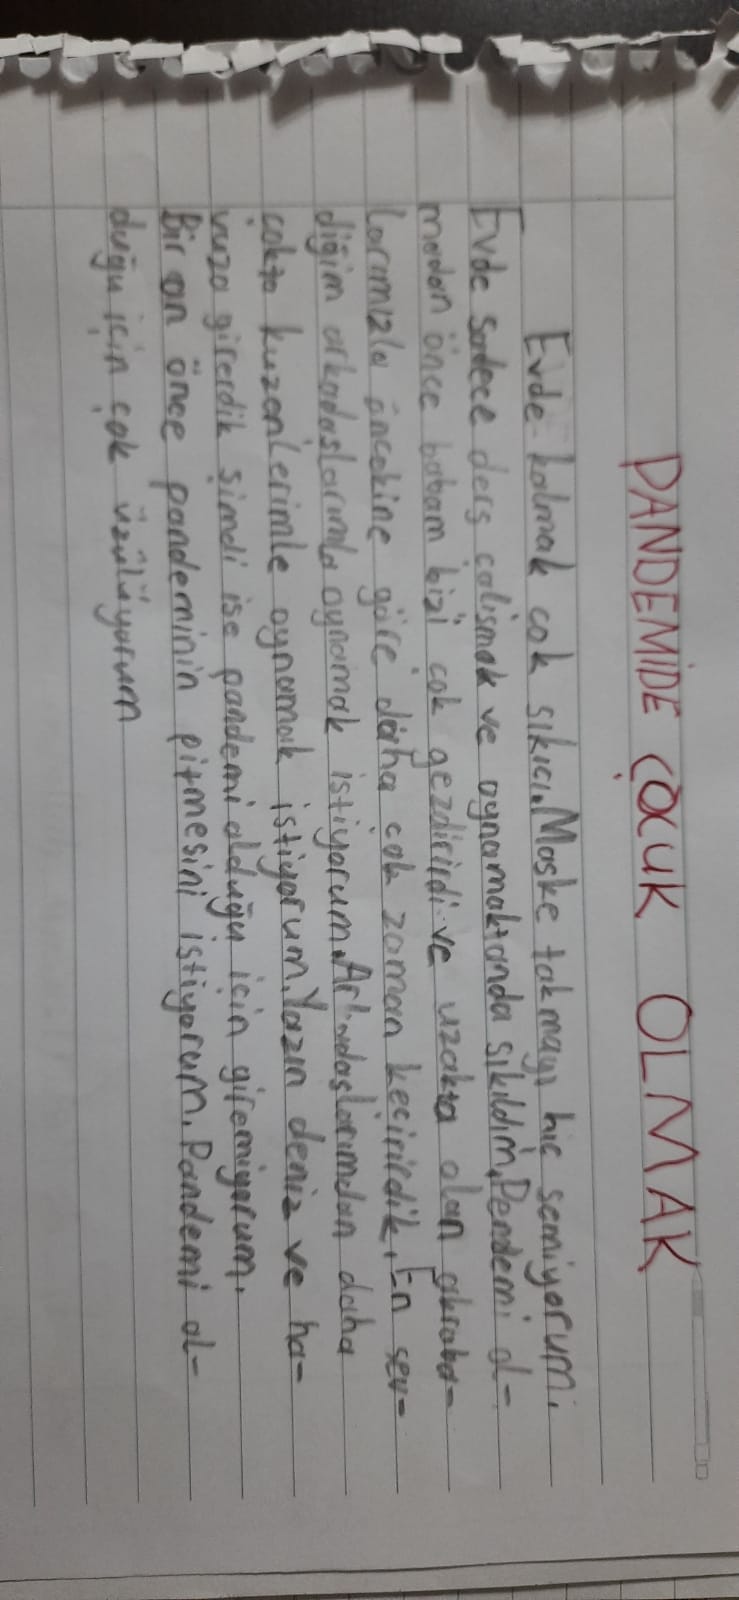 PANDEMİDE ÇOCUK OLMAK
Evde kalmak cok sıkıcı. Maske takmayı hic semiyorum.
Evde sadece ders calismak ve oynamaktanda sıkıldım. Pendemi ol-
madan önce babam bizi cok gezdirirdi ve uzakta olan akraba-
larımızla öncekine göre daha cok zaman kecirirdik. En sev-
diğim arkadaslarımla oynamak istiyorum. Arkadaslarımdan daha
cokta kuzenlerimle oynamak istiyorum. Yazın deniz ve ha-
vuza girerdik simdi ise pandemi olduğu için giremiyorum.
Bir an önce pandeminin pitmesini istiyorum. Pandemi ol-
duğu için çok üzülüyorum